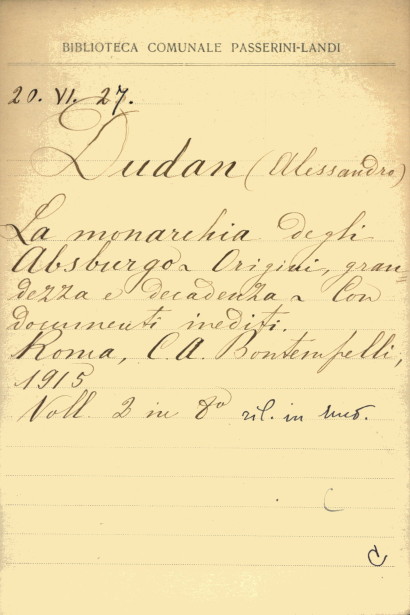 BIBLIOTECA COMUNALE PASSERINI-LANDI
20. VI. 27.
Dudan (Alessandro)
La monarchia degli
Absburgo - Origini, gran=
dezza e decadenza - Con
documenti inediti.
Roma, C. A. Bontempelli,
1915
Voll. 2 in 8° ril. in uno.
C